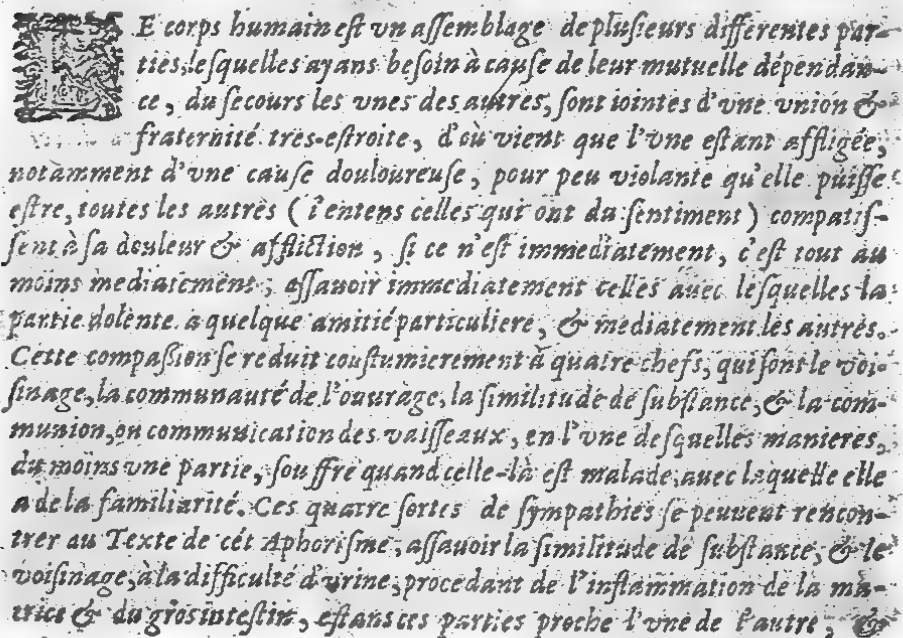 LE corps humain est vn assemblage de plusieurs differentes par-
ties, lesquelles ayans besoin à cause de leur mutuelle dépendan-
ce, du secours les vnes des autres, sont iointes d'vne vnion &
fraternité tres-estroite, d'où vient que l'vne estant affligée,
notamment d'vne cause douloureuse, pour peu violante qu'elle puisse
estre, toutes les autres (i'entens celles qui ont du sentiment) compatis-
sent à sa douleur & affliction, si ce n'est immediatement, c'est tout au
moins mediatement; assauoir immediatement celles auec lesquelles la
partie dolente a quelque amitié particuliere, & mediatement les autres.
Cette compassion se reduit coustumierement à quatre chefs, qui sont le voi-
sinage, la communauté de l'ouurage, la similitude de substance, & la com-
munion, ou communication des vaisseaux, en l'vne desquelles manieres,
du moins vne partie, souffre quand celle-là est malade, auec laquelle elle
a de la familiarité. Ces quatre sortes de sympathies se peuuent rencon-
trer au Texte de cét Aphorisme, assauoir la similitude de substance, & le
voisinage, à la difficulté d'vrine, procedant de l'inflammation de la ma-
trice & du gros intestin, estans ces parties proche l'vne de l'autre, &